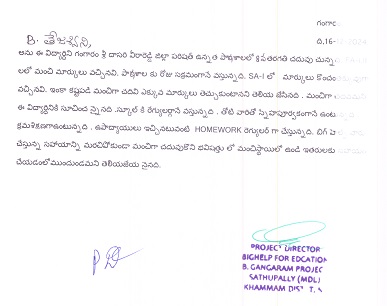 గంగారం
B. తేజస్విని
ది.16-
అను ఈ విద్యార్థిని గంగారం శ్రీ దాసరి వీరారెడ్డి జిల్లా పరిషత్ ఉన్నత పాఠశాలలో తరగతి చదువు
లలో మంచి మార్కులు వచ్చినవి. పాఠశాల కు రోజు సక్రమంగానే వస్తున్నది. SA-I లో మార్కులు
వచ్చినవి. ఇంకా కష్టపడి మంచిగా చదివి ఎక్కువ మార్కులు తెచ్చుకుంటానని తెలియ జేసినది . మంచిగా
ఈ విద్యార్థినికి సూచించ నైనది .స్కూల్ కి రెగ్యులర్గానే వస్తున్నది . తోటి వారితో స్నేహపూర్వకంగానే
క్రమశిక్షణగాఉంటున్నది . ఉపాధ్యాయులు ఇచ్చినటువంటి HOMEWORK రెగ్యులర్ గా చేస్తున్నది. బిగ్
చేస్తున్న సహాయాన్ని మరచిపోకుండా మంచిగా చదువుకొని భవిష్యత్తు లో మంచిస్థాయిలో ఉండి ఇతరులకు
చేయడంలోముందుండమని తెలియజేయ నైనది.
PROJECT DIRECTOR
BIGHELP FOR EDCATION
B. GANGARAM PROJEC
SATHUPALLY (MDL)
KHAMMAM DIST. T.